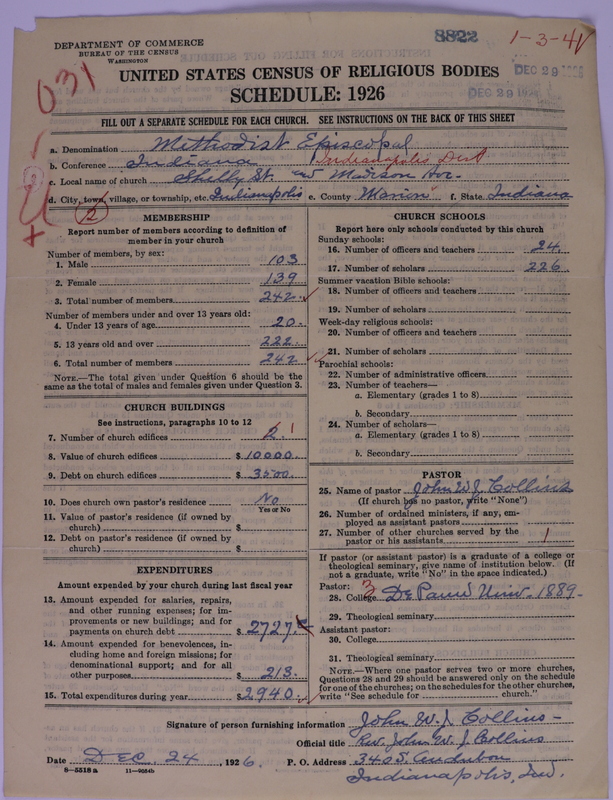 DEPARTMENT OF COMMERCE
BUREAU OF THE CENSUS
WASHINGTON
8822
1-3-41
DEC 29 1926
DEC 29 1926
031
UNITED STATES CENSUS OF RELIGIOUS BODIES
SCHEDULE: 1926
FILL OUT A SEPARATE SCHEDULE FOR EACH CHURCH. SEE INSTRUCTIONS ON THE BACK OF THIS SHEET
a. Denomination Methodist Episcopal
b. Conference Indiana Indianapolis Dist
c. Local name of church Shelly St. and Madison Ave.
d. City, town, village, or township, etc. Indianapolis e. County Marion f. State Indiana
2
MEMBERSHIP
Report number of members according to definition of
member in your church
Number of members, by sex:
1. Male 103
2. Female 139
3. Total number of members 242
Number of members under and over 13 years old:
4. Under 13 years of age 20
5. 13 years old and over 222
6. Total number of members 242
NOTE.—The total given under Question 6 should be the
same as the total of males and females given under Question 3.
CHURCH BUILDINGS
See instructions, paragraphs 10 to 12
7. Number of church edifices 2 1
8. Value of church edifices $10000.
9. Debt on church edifices $3500.
10. Does church own pastor's residence No
Yes or No
11. Value of pastor's residence (if owned by
church) $
12. Debt on pastor's residence (if owned by
church) $
EXPENDITURES
Amount expended by your church during last fiscal year
13. Amount expended for salaries, repairs,
and other running expenses; for im-
provements or new buildings; and for
payments on church debt $2727.
14. Amount expended for benevolences, in-
cluding home and foreign missions; for
denominational support; and for all
other purposes $213.
15. Total expenditures during year $2940.
CHURCH SCHOOLS
Report here only schools conducted by this church
Sunday schools:
16. Number of officers and teachers 24
17. Number of scholars 226
Summer vacation Bible schools:
18. Number of officers and teachers
19. Number of scholars
Week-day religious schools:
20. Number of officers and teachers
21. Number of scholars
Parochial schools:
22. Number of administrative officers
23. Number of teachers—
a. Elementary (grades 1 to 8)
b. Secondary
24. Number of scholars—
a. Elementary (grades 1 to 8)
b. Secondary
PASTOR
25. Name of pastor John W. J. Collins
(If church has no pastor, write "None")
26. Number of ordained ministers, if any, em-
ployed as assistant pastors
27. Number of other churches served by the
pastor or his assistants 1
If pastor (or assistant pastor) is a graduate of a college or
theological seminary, give name of institution below. (If
not a graduate, write "No" in the space indicated.)
Pastor:
28. College 3 De Pauw Univ. 1889-
29. Theological seminary
Assistant pastor:
30. College
31. Theological seminary
NOTE.—Where one pastor serves two or more churches,
Questions 28 and 29 should be answered only on the schedule
for one of the churches; on the schedules for the other churches,
write "See schedule for church."
Signature of person furnishing information John W. J. Collins-
Official title Rev. John W. J. Collins
Date Dec 24, 1926. P. O. Address 340 S. Audubon
Indianapolis, Ind.
8—5518 a 11—9554b